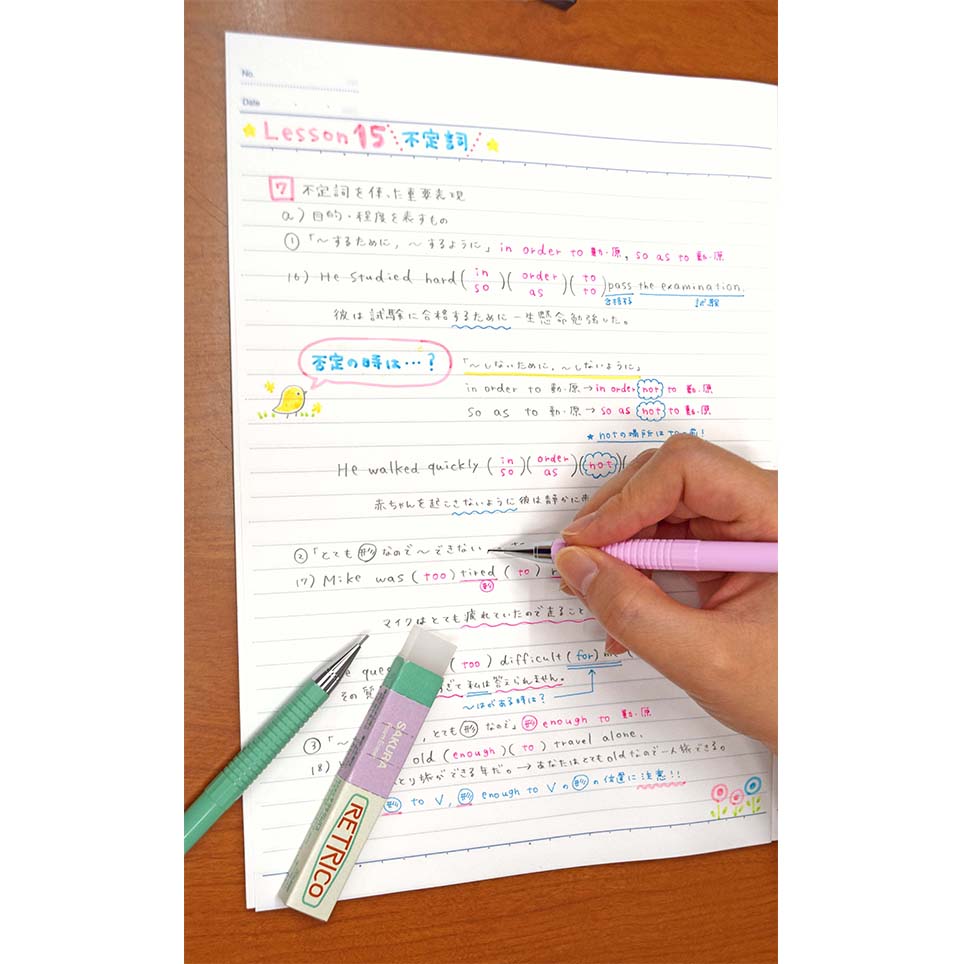 No.
Date
Lesson 15 不定詞
7 不定詞を使った重要表現
a) 目的・程度を表すもの
① 「〜するために, 〜するように」 in order to 動・原, so as to 動・原
16) He studied hard (in so)(order as)(to to) pass the examination.
合格する 試験
彼は試験に合格するために一生懸命勉強した。
否定の時は…?
「〜しないために, 〜しないように」
in order to 動・原 → in order not to 動・原
so as to 動・原 → so as not to 動・原
★ notの場所はtoの前!
He walked quickly (in so)(order as)(not)(
赤ちゃんを起こさないように彼は静かに
② 「とても形なので〜できない
17) Mike was (too) tired (to)
形
マイクはとても疲れていたので走ること
too) difficult (for) me
その 私は答えられません。
〜はがある時は?
③ 「〜 , とても形なので」 形 enough to 動・原
18) old (enough)(to) travel alone.
とり旅ができる年だ。→ あなたはとてもoldなので一人旅できる。
形 to V, 形 enough to V の形の位置に注意!!
SAKURA
RETRICO